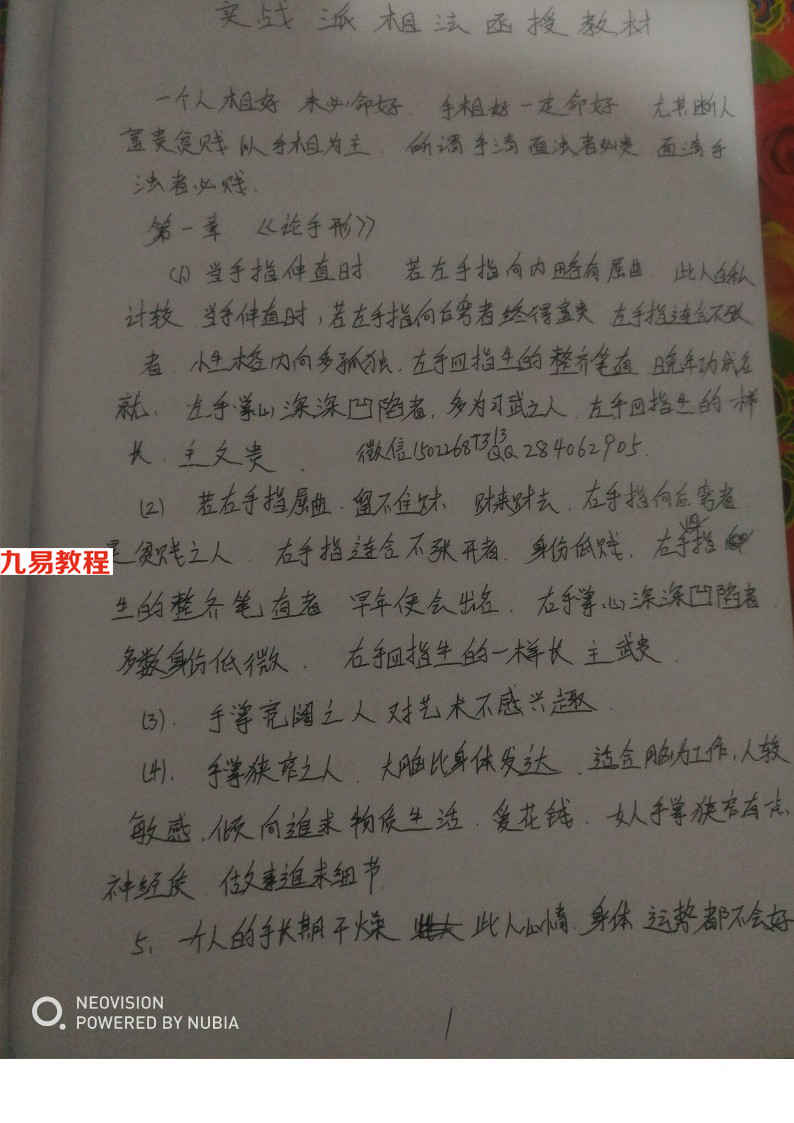 实战派相法函授教材
一个人相好 未必命好 手相好一定命好 尤其断人
富贵贫贱 以手相为主 所谓手清面浊者必贵 面清手
浊者必贱.
第一章 《论手形》
(1) 当手指伸直时 若左手指向内略有屈曲 此人自私
计较 当手伸直时,若左手指向后弯者终得富贵 左手指连合不张
者 性格内向多孤独.左手四指生的整齐笔直 晚年功成名
就、左手掌心深深凹陷者,多为习武之人 左手四指生的一样
长 主文贵. 微信15022687313 QQ 284062905.
(2) 若右手指屈曲.留不住财 财来财去.右手指向后弯者
是贫贱之人 右手指连合不张开者.身份低贱.右手四指
生的整齐笔直者 早年便会出名.右手掌心深深凹陷者.
多数身份低微. 右手四指生的一样长 主武贵.
(3). 手掌宽阔之人 对艺术不感兴趣.
(4). 手掌狭窄之人.大脑比身体发达.适合脑力工作,人较
敏感.倾向追求物质生活.爱花钱.女人手掌狭窄有点
神经质 做事追求细节
5. 一个人的手长期干燥 此人心情.身体 运势都不会好
九易教程
NEOVISION
POWERED BY NUBIA
1